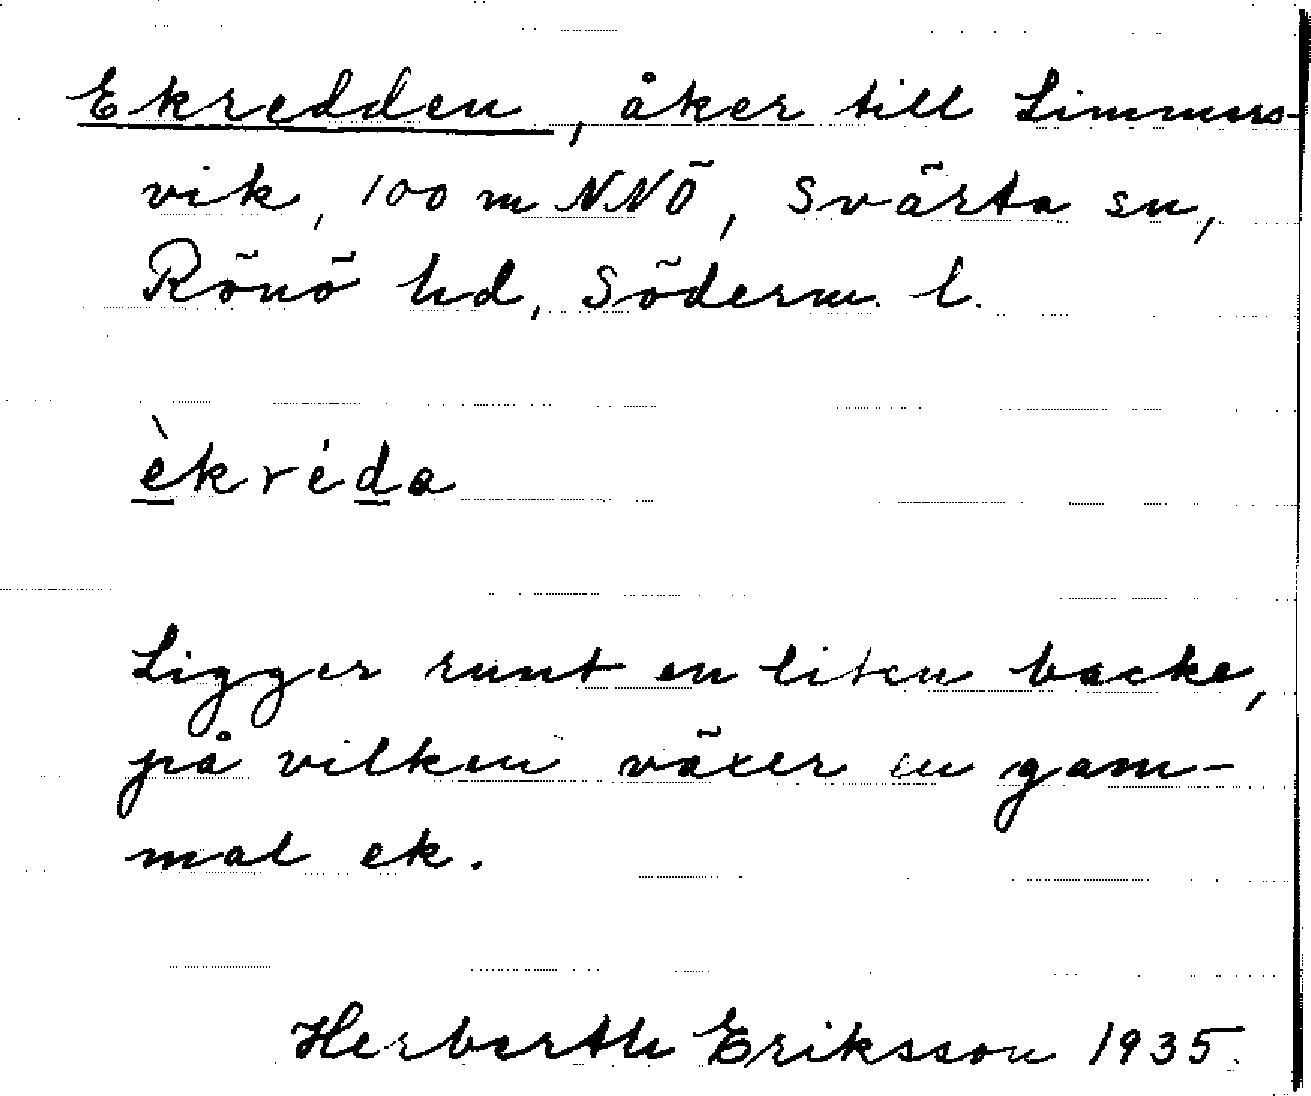 Ekredden, åker till Limmus-
vik, 100 m NNÖ, Svärta sn,
Rönö hd, Söderm. l.
èkréda
Ligger runt en liten backe,
på vilken växer en gam-
mal ek.
Herberth Eriksson 1935.